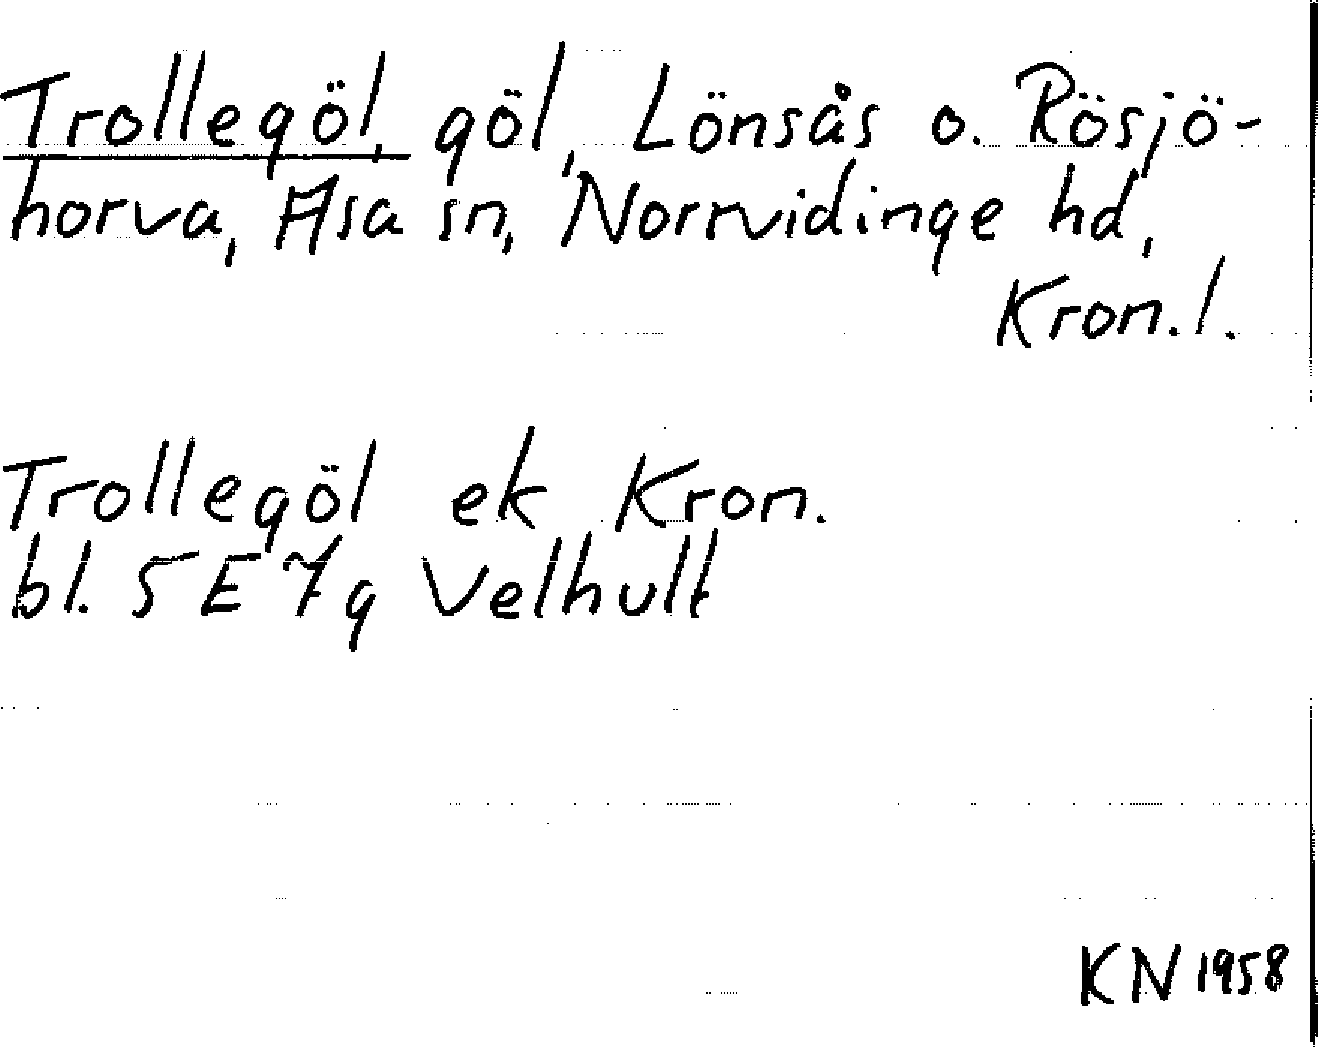 Trollegöl, göl, Lönsås o. Rösjö-
horva, Asa sn, Norrvidinge hd,
Kron.l.
Trollegöl ek Kron.
bl. 5 E 7g Velhult
KN 1958